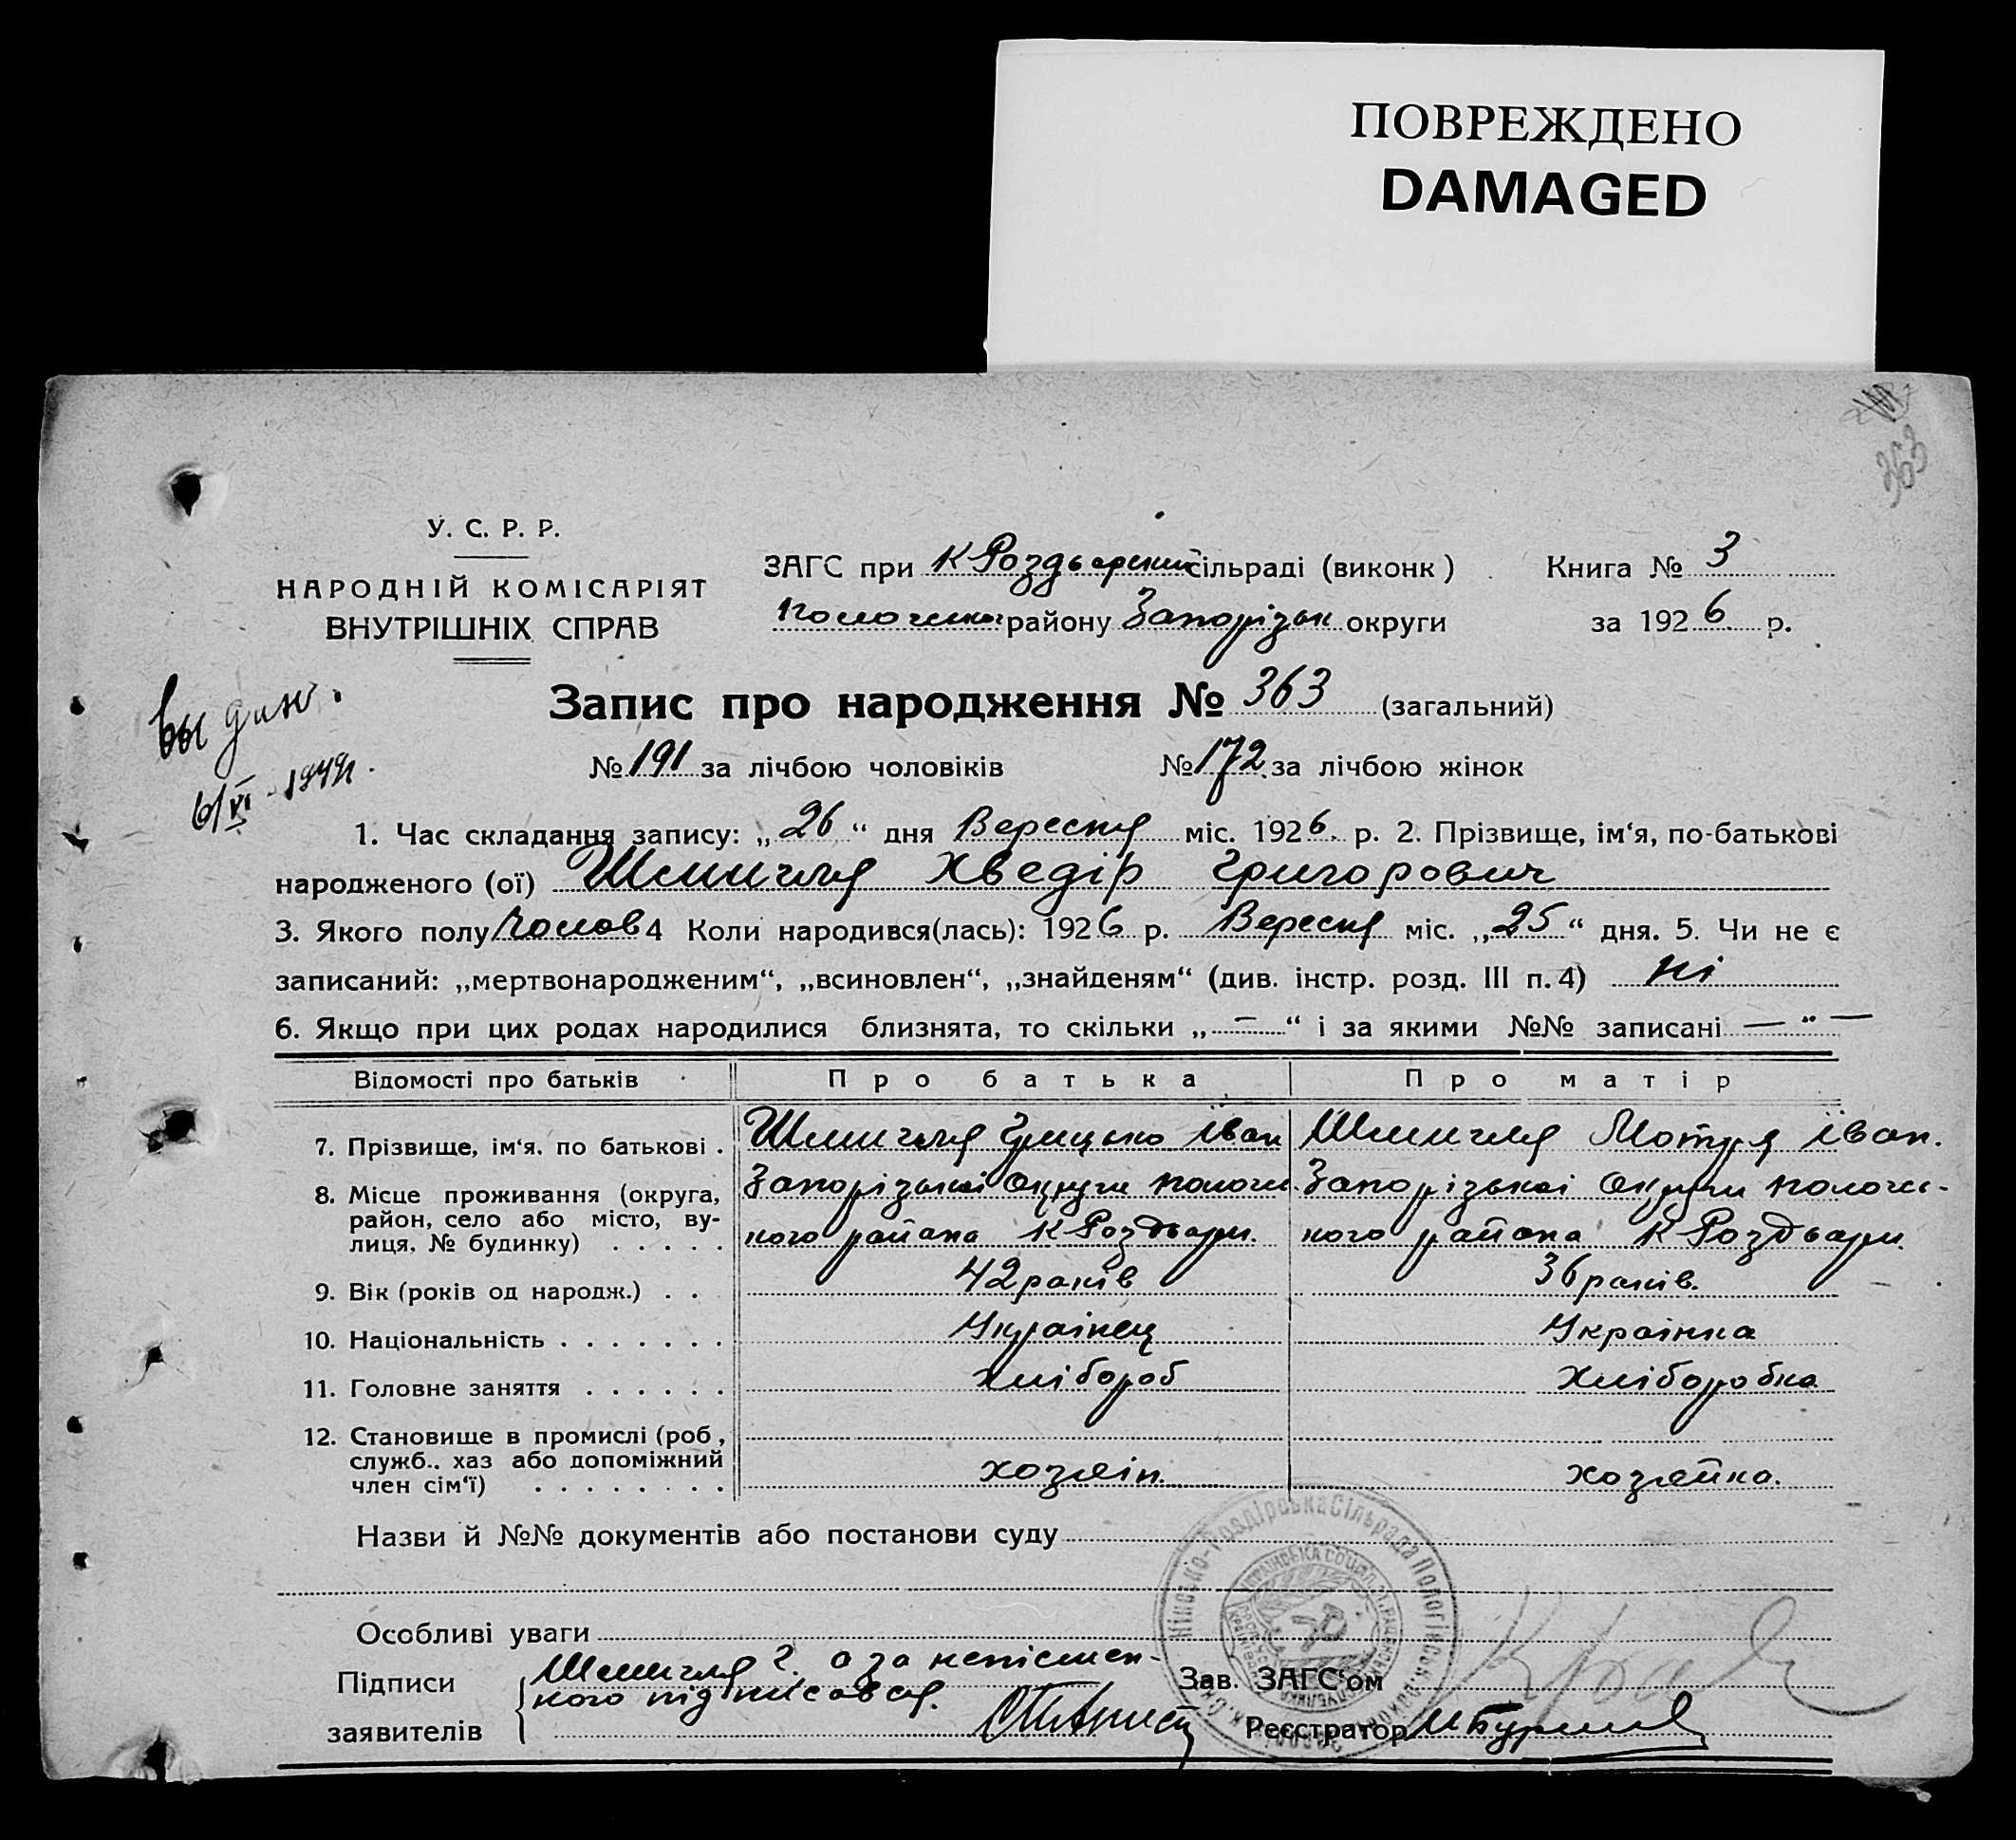 ПОВРЕЖДЕНО
DAMAGED
363
У. С. Р. Р.
НАРОДНІЙ КОМІСАРІЯТ
ВНУТРІШНІХ СПРАВ
ЗАГС при К Роздорській сільраді (виконк)
району Запорізьк округи
Книга № 3
за 1926 р.
Запис про народження № 363 (загальний)
№ 191 за лічбою чоловіків № 172 за лічбою жінок
Выдан.
6/VI - 1944
1. Час складання запису: „26“ дня Вересня міс. 1926. р. 2. Прізвище, ім‘я, по-батькові
народженого (ої) Хведір Григорович
3. Якого полу Чолов 4 Коли народився(лась): 1926 р. Вересня міс. „25“ дня. 5. Чи не є
записаний: „мертвонародженим“, „всиновлен“, „знайденям“ (див. інстр. розд. III п. 4) ні
6. Якщо при цих родах народилися близнята, то скільки „—“ і за якими №№ записані — " —
Відомості про батьків Про батька Про матір
7. Прізвище, ім‘я. по батькові . Грицько Іван Мотря Іван.
8. Місце проживання (округа, район, село або місто, вулиця, № будинку) . . . . .
Запорізької Округи Запорізької Округи
кого района К Роздор. кого района К Роздор.
9. Вік (років од народж.) . . 42 років 36 років.
10. Національність . . . . . . . Українец Українка
11. Головне заняття . . . . . . Хлібороб Хліборобка
12. Становище в промислі (роб, служб.. хаз або допоміжний член сім‘ї) . . . . . . . . хозяін. хозяйка.
Назви й №№ документів або постанови суду
Особливі уваги
Підписи
заявителів
г. а за неписмен-
ного підписався.
Зав. ЗАГС‘ом
Реєстратор